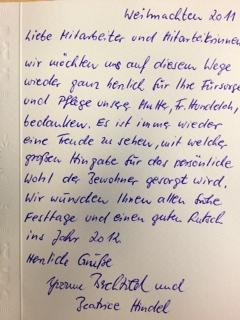 Weihnachten 2011
Liebe Mitarbeiter und Mitarbeiterinnen
wir möchten uns auf diesem Wege
wieder ganz herzlich für Ihre Fürsorge
und Pflege unserer Mutter, Fr.
bedanken. Es ist immer wieder
eine Freude zu sehen, mit welcher
großen Hingabe für das persönliche
Wohl der Bewohner gesorgt wird.
Wir wünschen Ihnen allen frohe
Festtage und einen guten Rutsch
ins Jahr 2012.
Herzliche Grüße
und
Beatrice Hindel